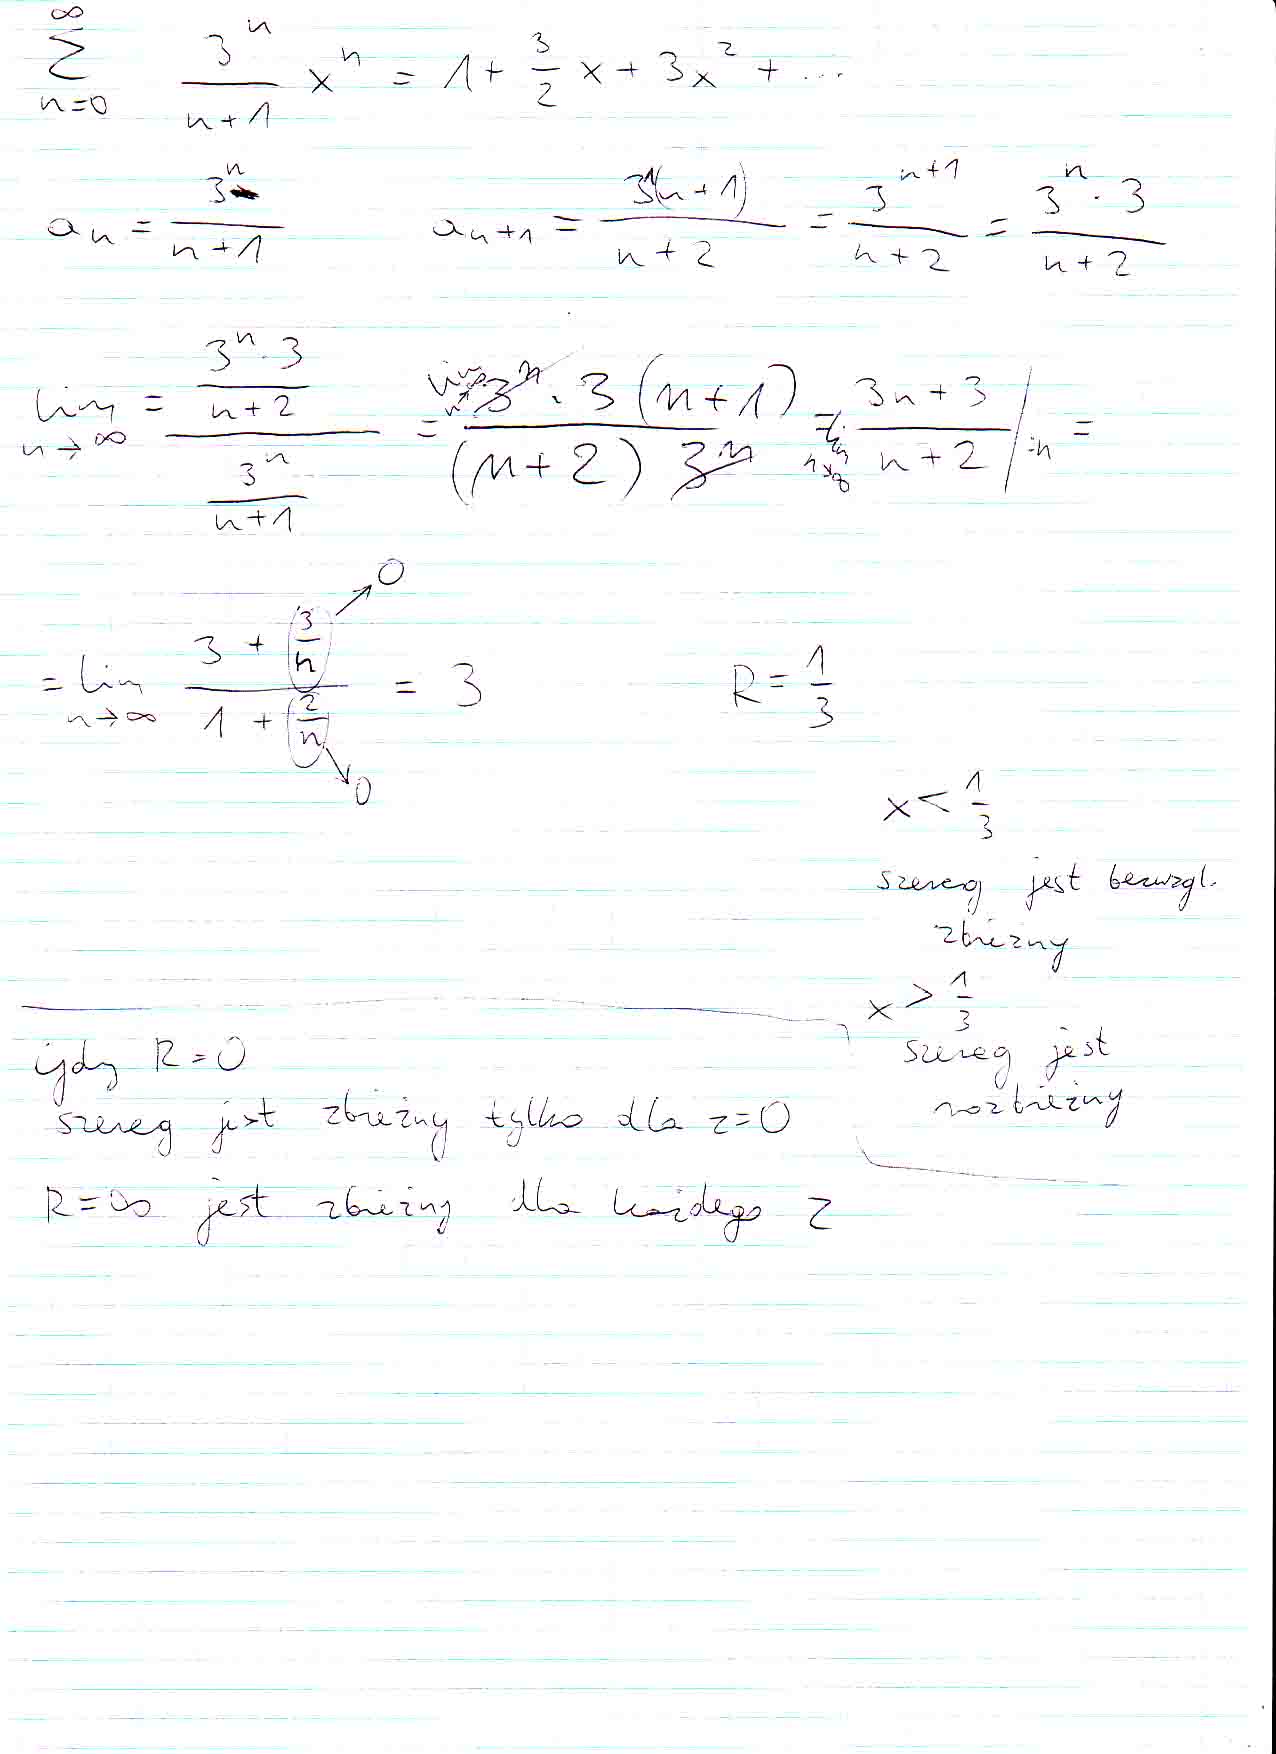 ∞
∑ 3^n/(n+1) x^n = 1 + 3/2 x + 3x^2 + ...
n=0
a_n = 3^n/(n+1) a_{n+1} = 3^(n+1)/(n+2) = 3^{n+1}/(n+2) = 3^n · 3/(n+2)
lim n→∞ = (3^n · 3/(n+2))/(3^n/(n+1)) = lim n→∞ 3^n · 3(n+1)/((n+2) 3^n) = lim n→∞ (3n+3)/(n+2) /:n =
= lim n→∞ (3 + (3/n))/(1 + (2/n)) = 3 R = 1/3
→ 0
→ 0
x < 1/3
szereg jest bezwzgl.
zbieżny
x > 1/3
szereg jest
rozbieżny
gdy R = 0
szereg jest zbieżny tylko dla z=0
R=∞ jest zbieżny dla każdego z